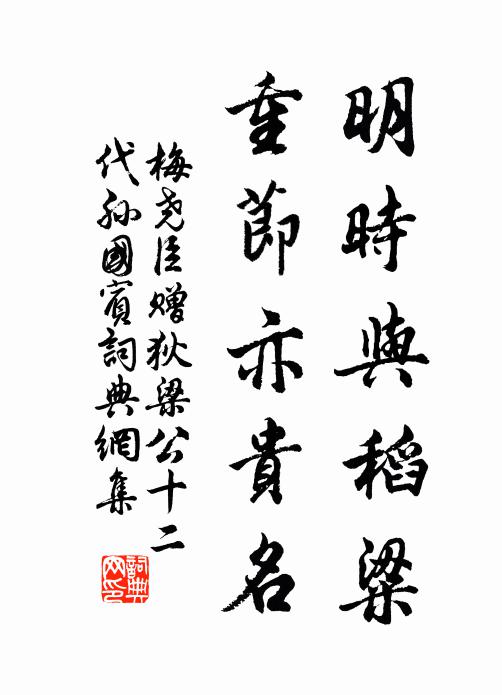 明時與稻粱
重節亦貴名
梅尧臣赠狄梁公十二
代孙國賓詞典網集
詞典
网印